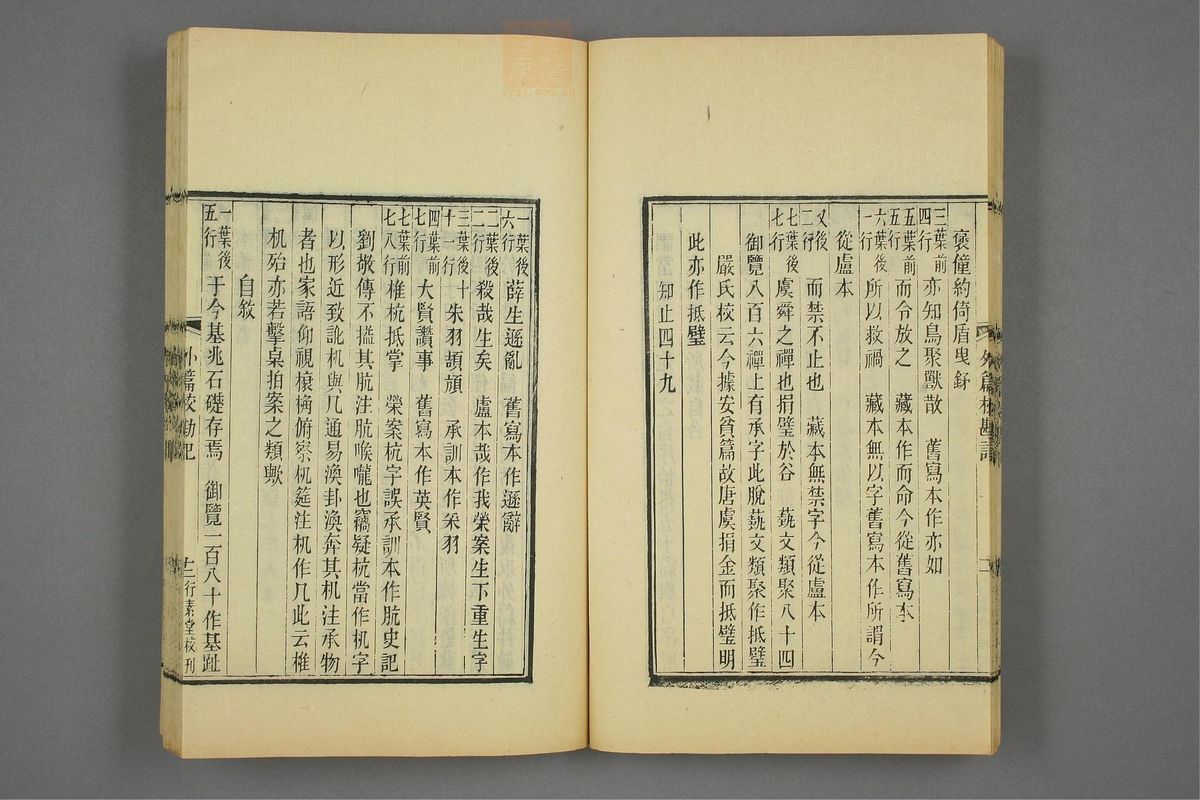 褒僮約倚盾曳鉌
三葉前四行 亦知鳥聚獸散 舊寫本作亦如
五葉前五行 而令放之 藏本作而命今從舊寫本
六葉後一行 所以救禍 藏本無以字舊寫本作所謂今
從盧本
又後二行 而禁不止也 藏本無禁字今從盧本
七葉後七行 虞舜之禪也捐璧於谷 蓺文類聚八十四
御覽八百六禪上有承字此脫蓺文類聚作抵璧
嚴氏校云今據安貧篇故唐虞捐金而抵璧明
此亦作抵璧
知止四十九
一葉後六行 薛生遜亂 舊寫本作遜辭
二葉後二行 殺哉生矣 盧本哉作我榮案生下重生字
三葉後十一行 朱羽頡頏 承訓本作采羽
四葉前七行 大賢讚事 舊寫本作英賢
七葉前七八行 椎杭抵掌 榮案杭字誤承訓本作肮史記
劉敬傳不搤其肮注肮喉嚨也竊疑杭當作机字
以形近致訛机與几通易渙卦渙奔其机注承物
者也家語仰視榱桷俯察机筵注机作几此云椎
机殆亦若擊桌拍案之類歟
自敘
一葉後五行 于今基兆石礎存焉 御覽一百八十作基趾
外篇校勘記
二
行素堂校刊